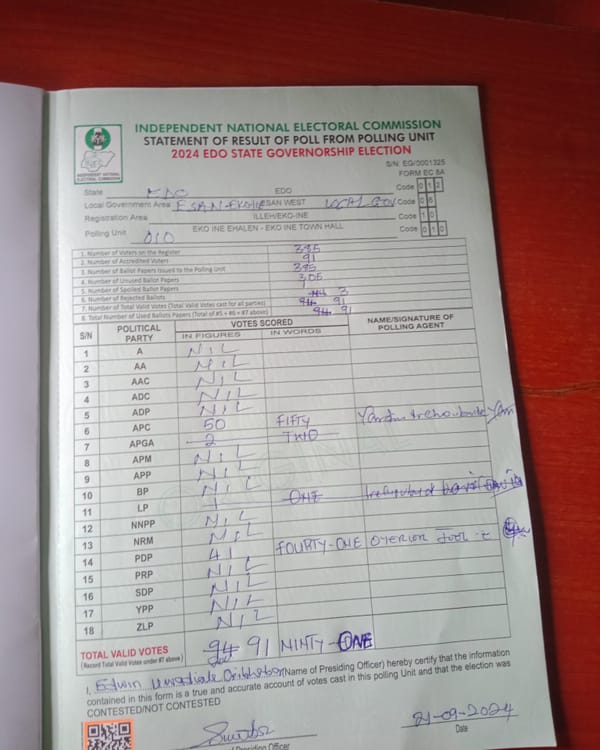 INDEPENDENT NATIONAL ELECTORAL COMMISSION
STATEMENT OF RESULT OF POLL FROM POLLING UNIT
2024 EDO STATE GOVERNORSHIP ELECTION
INEC
INDEPENDENT NATIONAL ELECTORAL COMMISSION
S/N: EG/0001325
FORM EC 8A
State EDO EDO Code 0 1 2
Local Government Area ESAN WEST LOCAL GOV Code 0 6
Registration Area ILLEH/EKO-INE Code 1 0
Polling Unit 010 EKO INE EHALEN - EKO INE TOWN HALL Code 0 1 0
1. Number of Voters on the Register 395
2. Number of Accredited Voters 91
3. Number of Ballot Papers Issued to the Polling Unit 395
4. Number of Unused Ballot Papers 305
5. Number of Spoiled Ballot Papers
6. Number of Rejected Ballots 3
7. Number of Total Valid Votes (Total Valid Votes cast for all parties) 94 91
8. Total Number of Used Ballots Papers (Total of #5 + #6 + #7 above) 94 91
S/N POLITICAL PARTY VOTES SCORED NAME/SIGNATURE OF POLLING AGENT
IN FIGURES IN WORDS
1 A NIL
2 AA NIL
3 AAC NIL
4 ADC NIL
5 ADP NIL
6 APC 50 FIFTY
7 APGA 2 TWO
8 APM NIL
9 APP NIL
10 BP NIL
11 LP 1 ONE
12 NNPP NIL
13 NRM NIL
14 PDP 41 FOURTY-ONE
15 PRP NIL
16 SDP NIL
17 YPP NIL
18 ZLP NIL
TOTAL VALID VOTES 94 91 NINTY-ONE
(Record Total Valid Votes under #7 above)
I, Edwin (Name of Presiding Officer) hereby certify that the information
contained in this form is a true and accurate account of votes cast in this polling Unit and that the election was
CONTESTED/NOT CONTESTED
21-09-2024
Presiding Officer Date